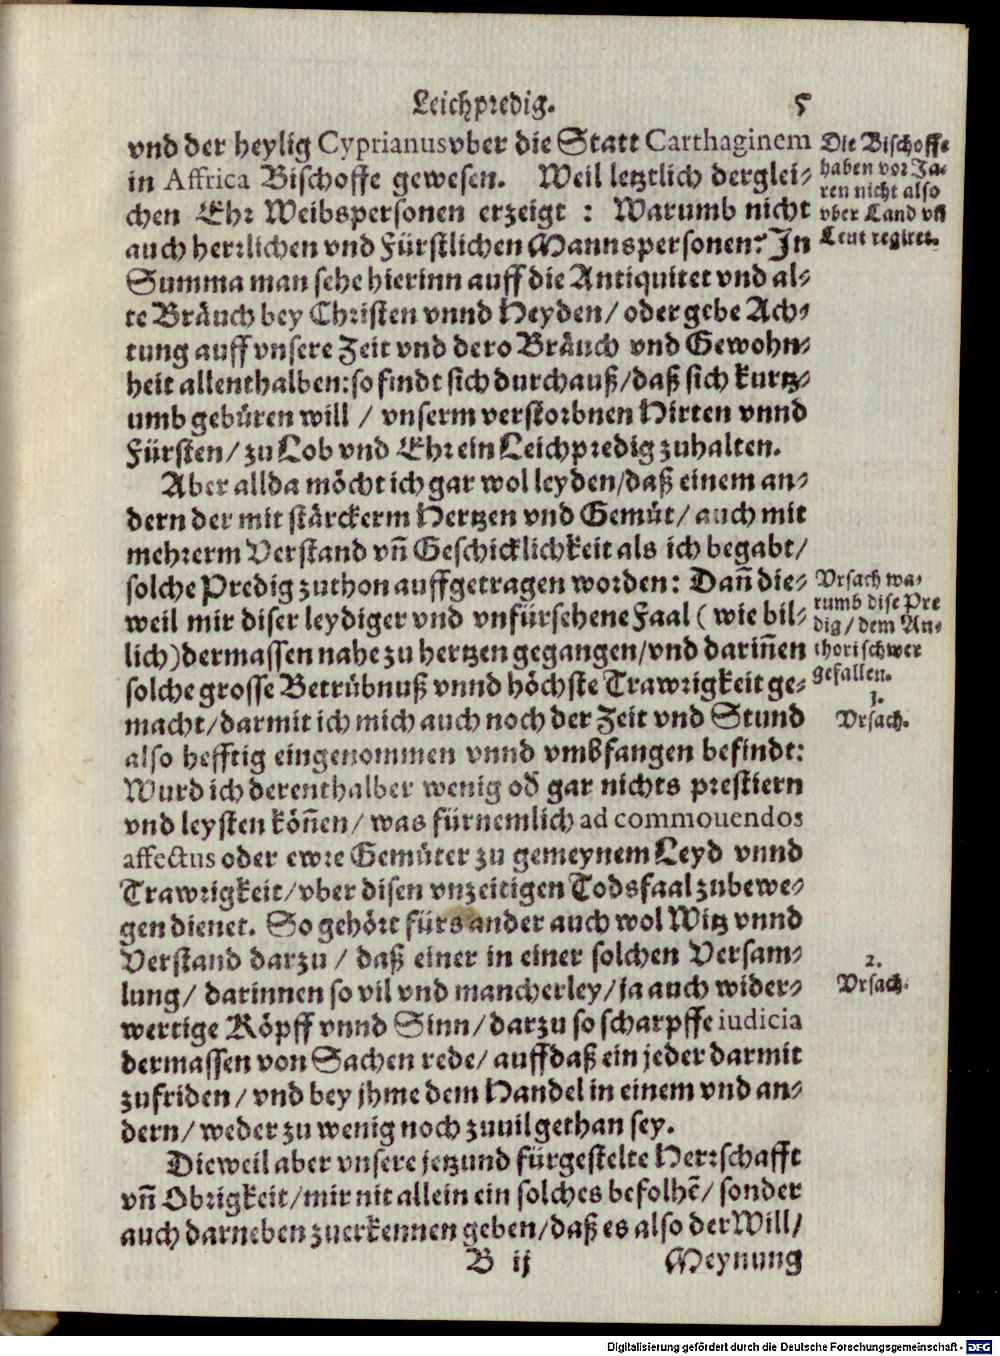 Leichpredig. 5
vnd der heylig Cyprianus vber die Statt Carthaginem
in Affrica Bischoffe gewesen. Weil letztlich derglei-
chen Ehr Weibspersonen erzeigt : Warumb nicht
auch herrlichen vnd Fürstlichen Mannspersonen? In
Summa man sehe hierinn auff die Antiquitet vnd al-
te Bräuch bey Christen vnnd Heyden/ oder gebe Ach-
tung auff vnsere Zeit vnd dero Bräuch vnd Gewohn-
heit allenthalben: so findt sich durchauß/ daß sich kurtz-
umb gebüren will / vnserm verstorbnen Hirten vnnd
Fürsten/ zu Lob vnd Ehr ein Leichpredig zuhalten.
Die Bischoffe
haben vor Ja-
ren nicht also
vber Land vñ
Leut regiret.
Aber allda möcht ich gar wol leyden/ daß einem an-
dern der mit stärckerm Hertzen vnd Gemüt/ auch mit
mehrerm Verstand vñ Geschicklichkeit als ich begabt/
solche Predig zuthon auffgetragen worden: Dañ die-
weil mir diser leydiger vnd vnfürsehene Faal ( wie bil-
lich) dermassen nahe zu hertzen gegangen/ vnd dariñen
solche grosse Betrübnuß vnnd höchste Trawrigkeit ge-
macht/ darmit ich mich auch noch der Zeit vnd Stund
also hefftig eingenommen vnnd vmbfangen befindt:
Wurd ich derenthalber wenig od̄ gar nichts prestiern
vnd leysten köñen/ was fürnemlich ad commouendos
affectus oder ewre Gemüter zu gemeynem Leyd vnnd
Trawrigkeit/ vber disen vnzeitigen Todsfaal zubewe-
gen dienet. So gehört fürs ander auch wol Witz vnnd
Verstand darzu / daß einer in einer solchen Versam-
lung/ darinnen so vil vnd mancherley/ ja auch wider-
wertige Köpff vnnd Sinn/ darzu so scharpffe iudicia
dermassen von Sachen rede/ auffdaß ein jeder darmit
zufriden/ vnd bey jhme dem Handel in einem vnd an-
dern/ weder zu wenig noch zuuil gethan sey.
Vrsach wa-
rumb dise Pre
dig/ dem Au-
thori schwer
gefallen.
1.
Vrsach.
2.
Vrsach.
Dieweil aber vnsere jetzund fürgestelte Herrschafft
vñ Obrigkeit/ mir nit allein ein solches befolhẽ/ sonder
auch darneben zuerkennen geben/ daß es also der Will/
B ij Meynung
Digitalisierung gefördert durch die Deutsche Forschungsgemeinschaft - DFG